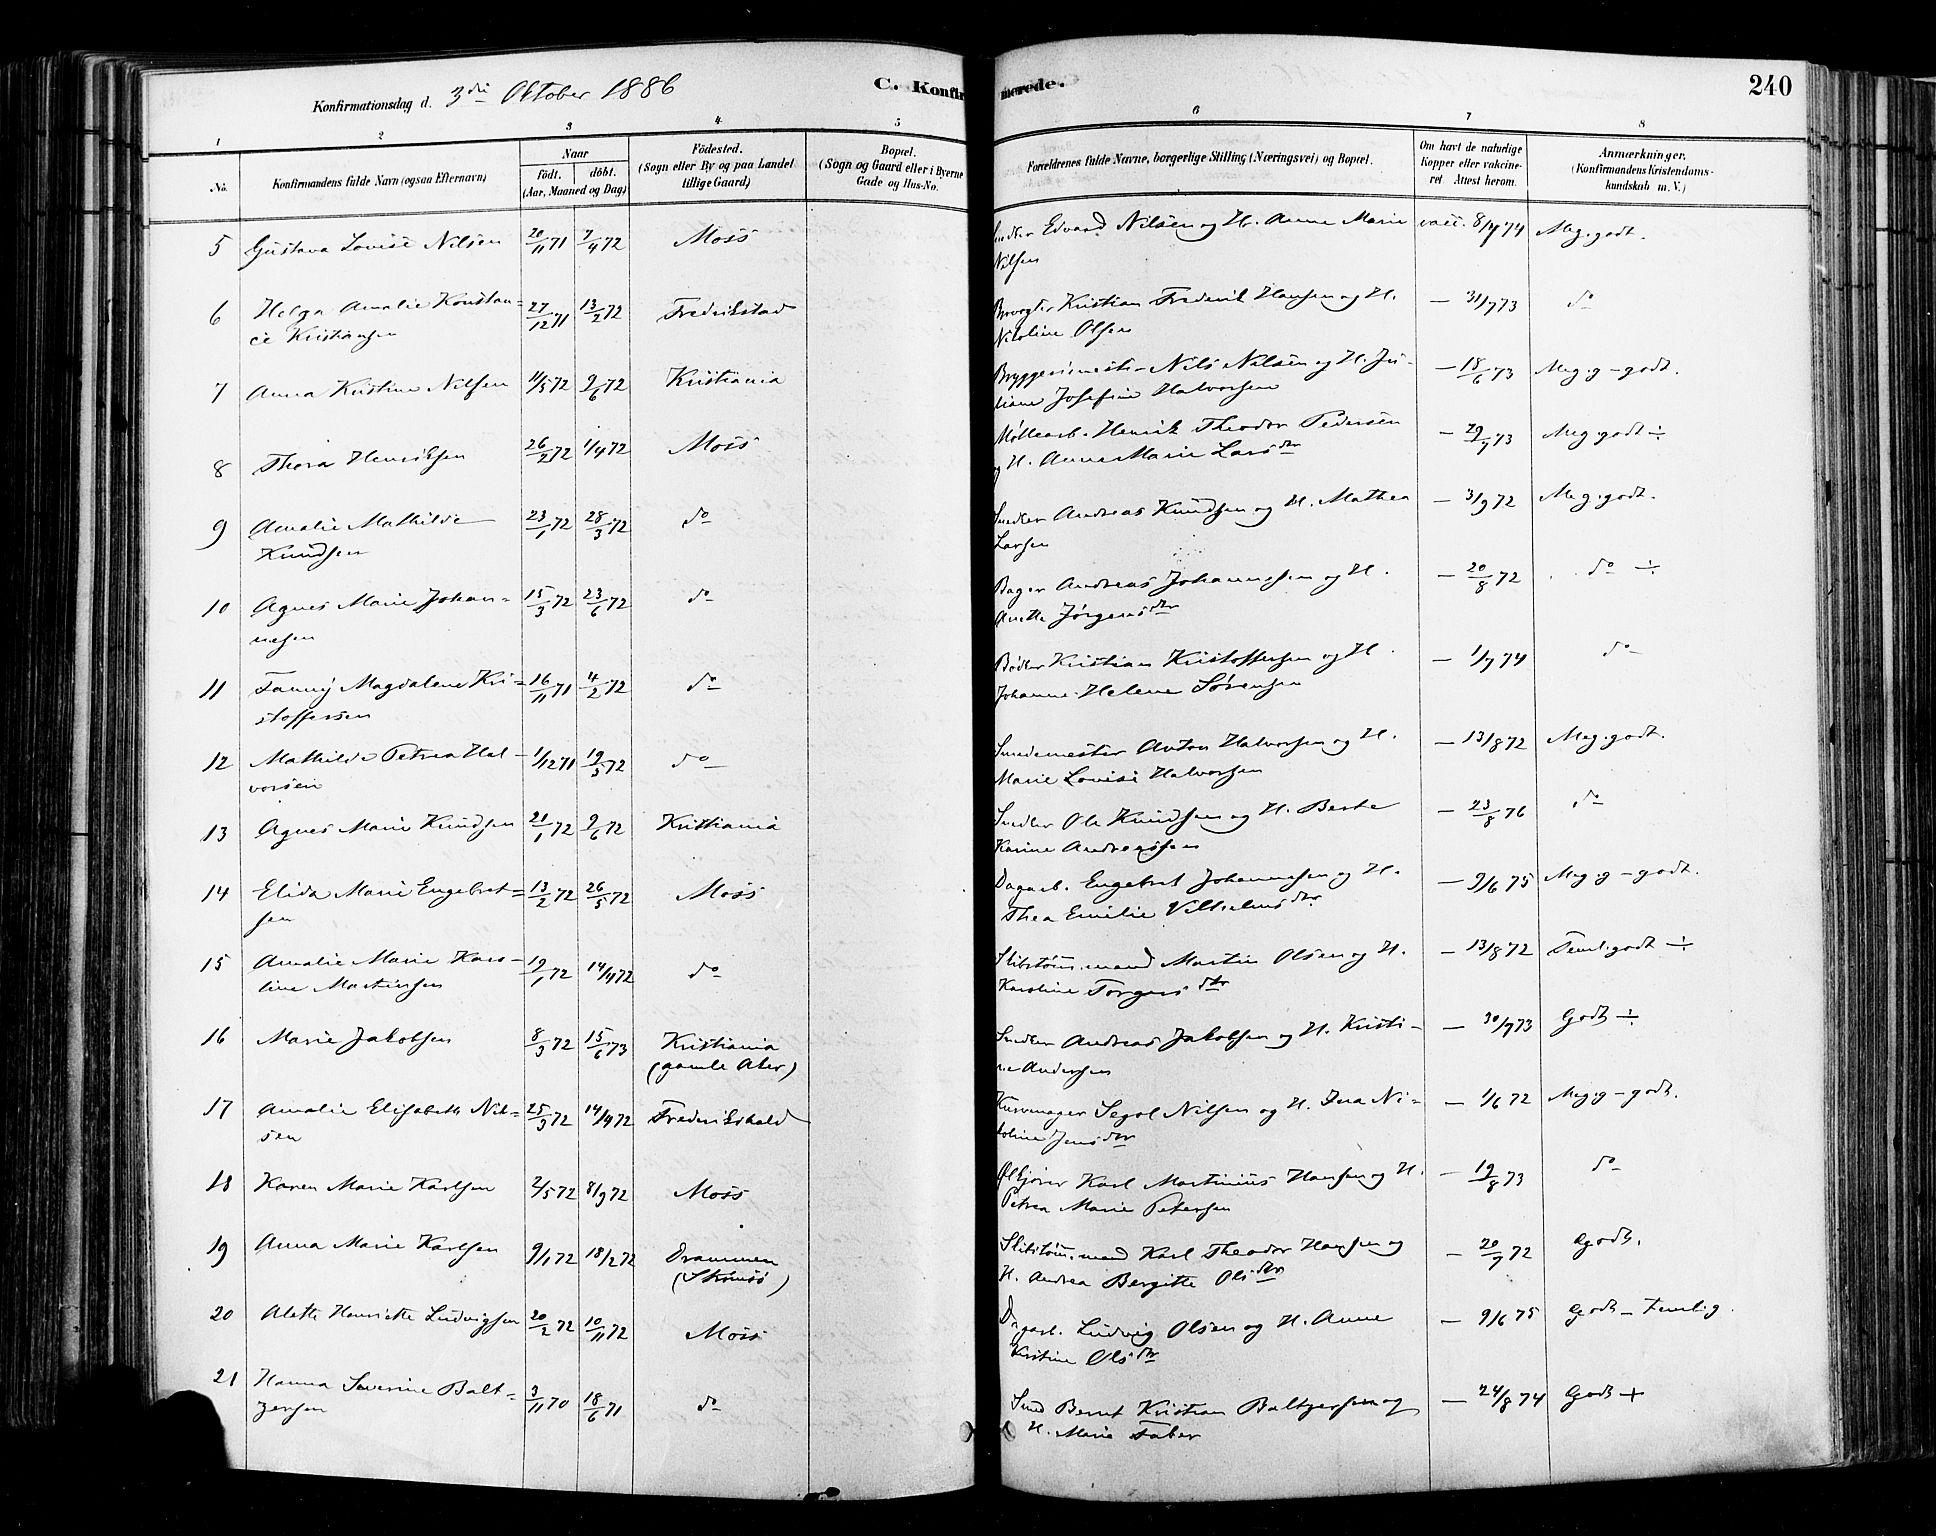 C. Konfirmerede.
240
Konfirmationsdag d. 3die Oktober 1886
1 2 3 4 5 6 7 8
No. Konfirmandens fulde Navn (ogsaa Efternavn) Naar födt. döbt. (Aar, Maaned og Dag) Födested. (Sogn eller By og paa Landet tillige Gaard) Bopæl. (Sogn og Gaard eller i Byerne Gade og Hus-No. Forældrenes fulde Navne, borgerlige Stilling (Næringsvei) og Bopæl. Om havt de naturlige Kopper eller vakcineret Attest herom. Anmærkninger. (Konfirmandens Kristendomskundskab m. V.)
5 Gustava Lovise Nilsen 20/11 71 7/4 72 Moss Snedker Edvard Nilsen og H. Anne Marie vacc. 8/7 74 Meg. godt.
Nilsen
6 Helga Amalie Konstan= 27/12 71 13/2 72 Fredrikstad Kristian Frederik Hansen og H. — 31/7 73 do
ce Kristiansen Nikoline Olsen
7 Anna Kristine Nilsen 11/5 72 9/6 72 Kristiania Bryggerimester Nils Nilsen og H. Ju= — 18/6 73 Meg. g - godt.
liane Josefine Halvorsen
8 Thora Henriksen 26/2 72 1/4 72 Moss Møllearb. Henrik Theodor Pedersen — 29/7 73 Meg. godt ÷
og H. Anne Marie Larsdtr
9 Amalie Mathilde 23/1 72 28/3 72 do Snedker Andreas Knudsen og H. Mathea — 3/9 72 Meg. godt.
Knudsen Larsen
10 Agnes Marie Johan= 15/3 72 23/6 72 do Bager Andreas Johannesen og H. — 20/8 72 do ÷
nesen Anette Jørgensdtr
11 Fanny Magdalene Kri= 16/11 71 4/2 72 do Bødker Kristian Kristoffersen og H — 1/7 74 do
stoffersen Johanne Helene Sørensen
12 Mathilde Petrea Hal= 1/12 71 19/5 72 do Smedemester Anton Halvorsen og H. — 13/8 72 Meg. godt.
vorsen Marie Lovise Halvorsen
13 Agnes Marie Knudsen 21/1 72 9/6 72 Kristiania Snedker Ole Knudsen og H. Berte — 23/8 76 do
Karine Andreassen
14 Elida Marie Engebret= 13/2 72 26/5 72 Moss Dagarb. Engebret Johannesen og H. — 9/6 75 Meg. g - godt.
sen Thea Emilie Vilhelmsdtr
15 Amalie Marie Karo= 19/1 72 14/4 72 do Slibstøm.mand Martin Olsen og H. — 13/8 72 Teml. godt ÷
line Martinsen Karoline Torgersdtr
16 Marie Jakobsen 8/3 72 15/6 73 Kristiania Snedker Andreas Jakobsen og H. Kristi= — 30/7 73 Godt ÷
(gamle Aker) ne Andersen
17 Amalie Elisabeth Nil= 25/3 72 14/4 72 Fredrikshald Kurvmager Segol Nilsen og H. Ina Ni= — 1/6 72 Meg. g - godt.
sen koline Jensdtr
18 Karen Marie Karlsen 2/5 72 8/9 72 Moss Ølkjører Karl Martinius Hansen og H. — 19/8 73 do
Petrea Marie Petersen
19 Anna Marie Karlsen 9/1 72 18/2 72 Drammen Slibstøm.mand Karl Theodor Hansen og — 20/7 72 Godt.
(Strømsø) H. Andrea Bergitte Olsdtr
20 Alette Henriette Ludvigsen 20/2 72 10/11 72 Moss Dagarb. Ludvig Olsen og H. Anne — 9/6 75 Godt - Temlig.
Kristine Olsdtr
21 Hanna Severine Balt= 3/11 70 18/6 71 do Smed Bernt Kristian Baltzersen og — 24/8 74 Godt +
zersen H. Marie Faber